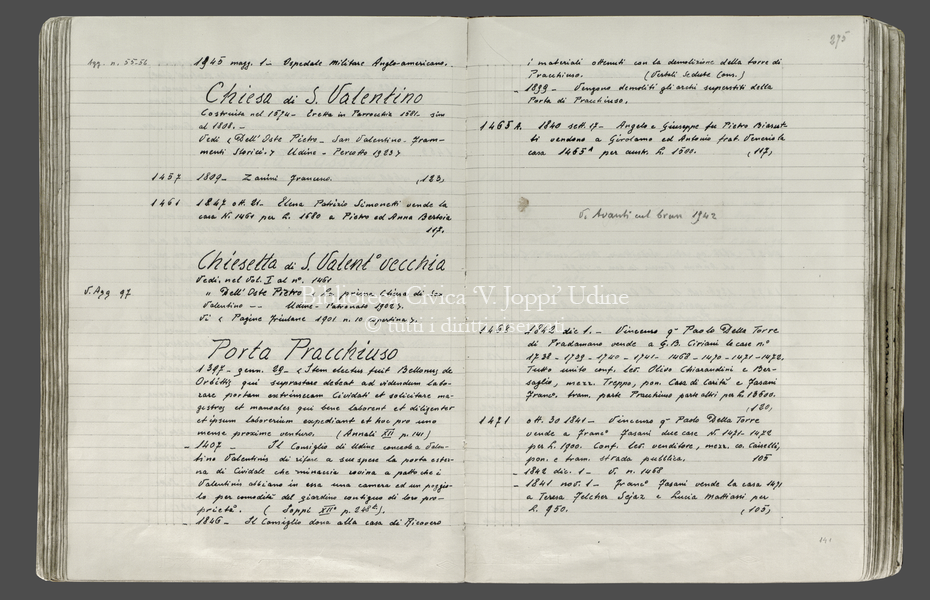 Agg. n. 55.56
1945 magg. 1 - Ospedale Militare Anglo-americano.
Chiesa di S. Valentino
Costruita nel 1574 - Eretta in Parrocchia 1581. sino
al 1808. -
Vedi < Dell'Oste Pietro - San Valentino. Fram-
menti Storici. > Udine - Percotto 1923 >
1457 1809 - Zanini Francesco. (123)
1461 1847 ott. 21 - Elena Patrizio Simonetti vende la
casa N. 1461 per L. 1680 a Pietro ed Anna Bertoia
117.
Chiesetta di S. Valent° vecchia
Vedi nel Vol. I al n°. 1461
V. Agg 97
" Dell'Oste Pietro - La prima Chiesa di San
Valentino - Udine - Patronato 1902 >.
Vi < Pagine Friulane 1901 n. 10 copertina >.
Porta Pracchiuso
1397 - genn. 29 - < Item electus fuit Bellonus de
Orbittis qui suprastare debeat ad videndum labo-
rare portam extrinsecam Cividati et solicitare ma-
gistros et manoales qui bene laborent et diligenter
et ipsum laborerium expediant et hoc pro uno
mense proxime venturo. (Annali XII p. 141)
- 1407 Il Consiglio di Udine concede a Valen-
tino Valentinis di rifare a sue spese la porta ester-
na di Cividale che minaccia rovina a patto che i
Valentinis abbiano in essa una camera ed un poggio-
lo per comodità del giardino contiguo di loro pro-
prietà. ( Joppi XII° p. 248 )
- 1846 - Il Consiglio dona alla casa di Ricovero
275
i materiali ottenuti con la demolizione della torre di
Pracchiuso. (Verbali Sedute Cons.)
- 1899 - Vengono demoliti gli archi superstiti della
Porta di Pracchiuso.
1465 A. 1840 sett. 17 - Angelo e Giuseppe fu Pietro
vendono a Girolamo ed Antonio frat. Venerio la
casa 1465 A per austr. L. 1500. (117)
V. Avanti col Civico 1942
1468 1842 dic 1. - Vincenzo q™ Paolo Della Torre
di Pradamano vende a G.B. Ciriani le case n.i
1738 - 1739 - 1740 - 1741 - 1468 - 1470 - 1471 - 1472.
Tutto unito conf. lev. Olivo Chiarandini e Ber-
saglio, mezz. Treppo, pon. Casa di Carità e Fasani
Franc°. tram. parte Pracchiuso parte altri per L. 13600.
(120)
1471 ott. 30 1841 - Vincenzo q™ Paolo Della Torre
vende a Franc° Fasani due case N. 1471 - 1472
per L. 1900. Conf. lev. venditore, mezz. co. Caiselli,
pon. e tram. strada pubblica. 105
- 1842 dic. 1 - V. n. 1468
- 1841 nov. 1 - Franc° Fasani vende la casa 1471
a Teresa Felcher Sejaz e Lucia Mattiassi per
L. 950. (105)
191
Biblioteca Civica 'V. Joppi' Udine
© tutti i diritti riservati